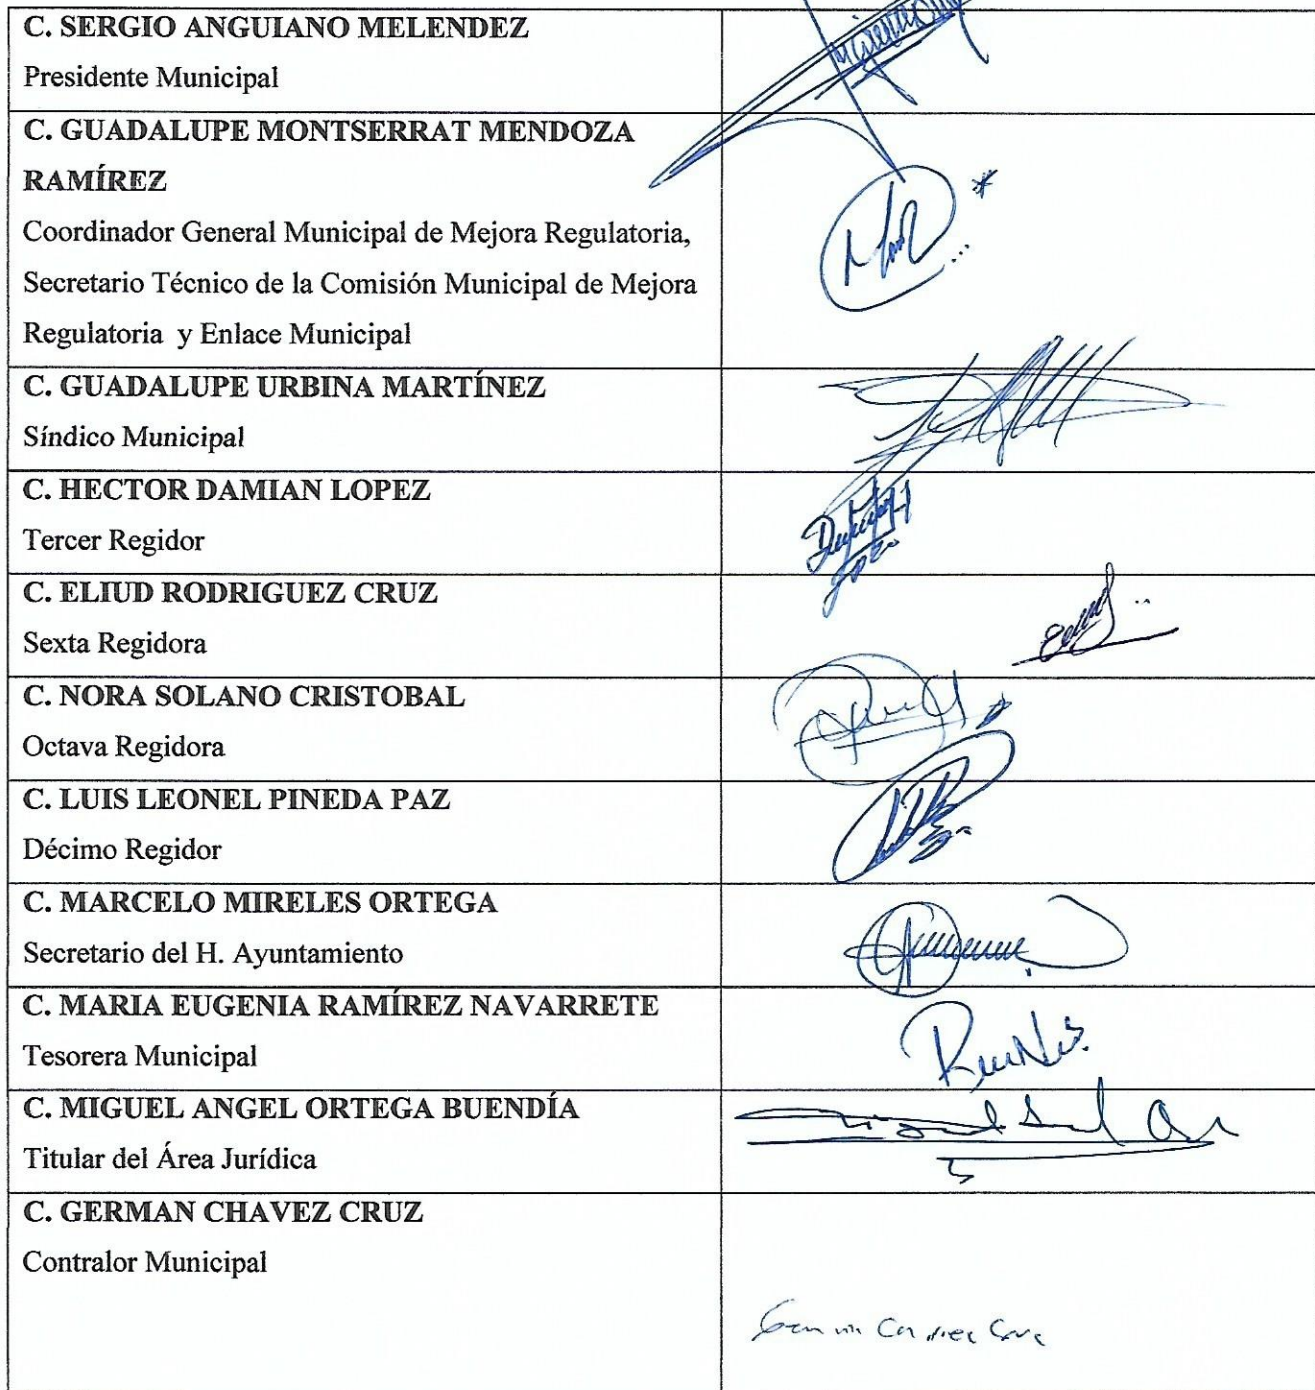 C. SERGIO ANGUIANO MELENDEZ
Presidente Municipal
C. GUADALUPE MONTSERRAT MENDOZA
RAMÍREZ
Coordinador General Municipal de Mejora Regulatoria,
Secretario Técnico de la Comisión Municipal de Mejora
Regulatoria y Enlace Municipal
C. GUADALUPE URBINA MARTÍNEZ
Síndico Municipal
C. HECTOR DAMIAN LOPEZ
Tercer Regidor
C. ELIUD RODRIGUEZ CRUZ
Sexta Regidora
C. NORA SOLANO CRISTOBAL
Octava Regidora
C. LUIS LEONEL PINEDA PAZ
Décimo Regidor
C. MARCELO MIRELES ORTEGA
Secretario del H. Ayuntamiento
C. MARIA EUGENIA RAMÍREZ NAVARRETE
Tesorera Municipal
C. MIGUEL ANGEL ORTEGA BUENDÍA
Titular del Área Jurídica
C. GERMAN CHAVEZ CRUZ
Contralor Municipal